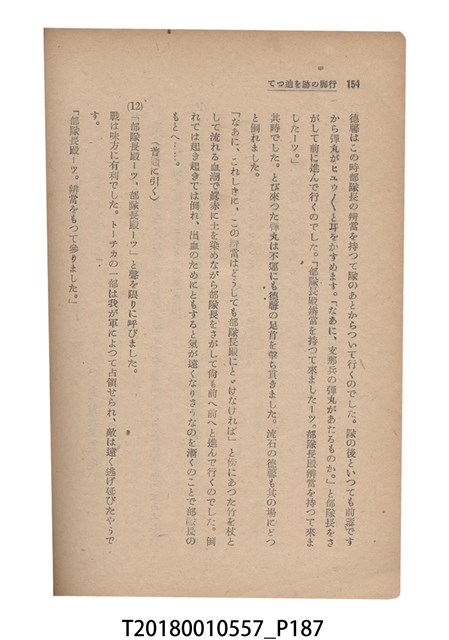 行脚の跡を追つて 154
德馨はこの時部隊長の辨當を持つて隊のあとからついて行くのでした。隊の後といつても前線です
から彈丸がヒユウ〳〵と耳をかすめます。「なあに、支那兵の彈丸があたるものか。」と部隊長をさ
がして前に進んで行くのでした。「部隊長殿辨當を持つて來ましたーツ。部隊長殿辨當を持つて來ま
したーツ。」
其時でした。とび來つた彈丸は不運にも德馨の足首を擊ち貫きました。流石の德馨も其の場にどつ
と倒れました。
「なあに、これしきに、この辨當はどうしても部隊長殿にとゞけなければ」と傍にあつた竹を杖と
して流れる血潮で眞赤に土を染めながら部隊長をさがして尙も前へ前へと進んで行くのでした。倒
れては起き起きては倒れ、出血のためにともすると氣が遠くなりさうなのを漸くのことで部隊長の
もとへ……。
(普通に引く)
(12)「部隊長殿ーツ、部隊長殿ーツ」と聲を限りに呼びました。
戰は味方に有利でした。トーチカの一部は我が軍によつて占領せられ、敵は遠く逃げ延びたやうで
す。
「部隊長殿ーツ。辨當をもつて參りました。」
T20180010557_P187